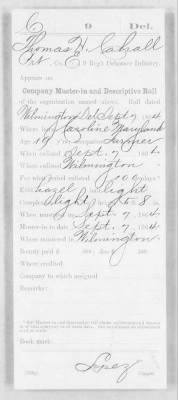 C 9 Del.
Thomas H. Cahall
Pvt. Co. C, 9 Reg't Delaware Infantry.
Appears on
Company Muster-in and Descriptive Roll
of the organization named above. Roll dated
Wilmington Del Sept 7, 1864.
Where born Caroline Maryland
Age 19 y'rs; occupation Farmer
When enlisted Sept. 7, 1864.
Where enlisted Wilmington
For what period enlisted 100 days
Eyes hazel; hair light
Complexion light; height 5 ft. 8 in.
When mustered in Sept. 7, 1864.
Muster-in to date Sept. 7, 1864.
Where mustered in Wilmington
Bounty paid $ 100; due $ 100
Where credited
Company to which assigned
Remarks:
Book mark:
Lopez
Copyist.